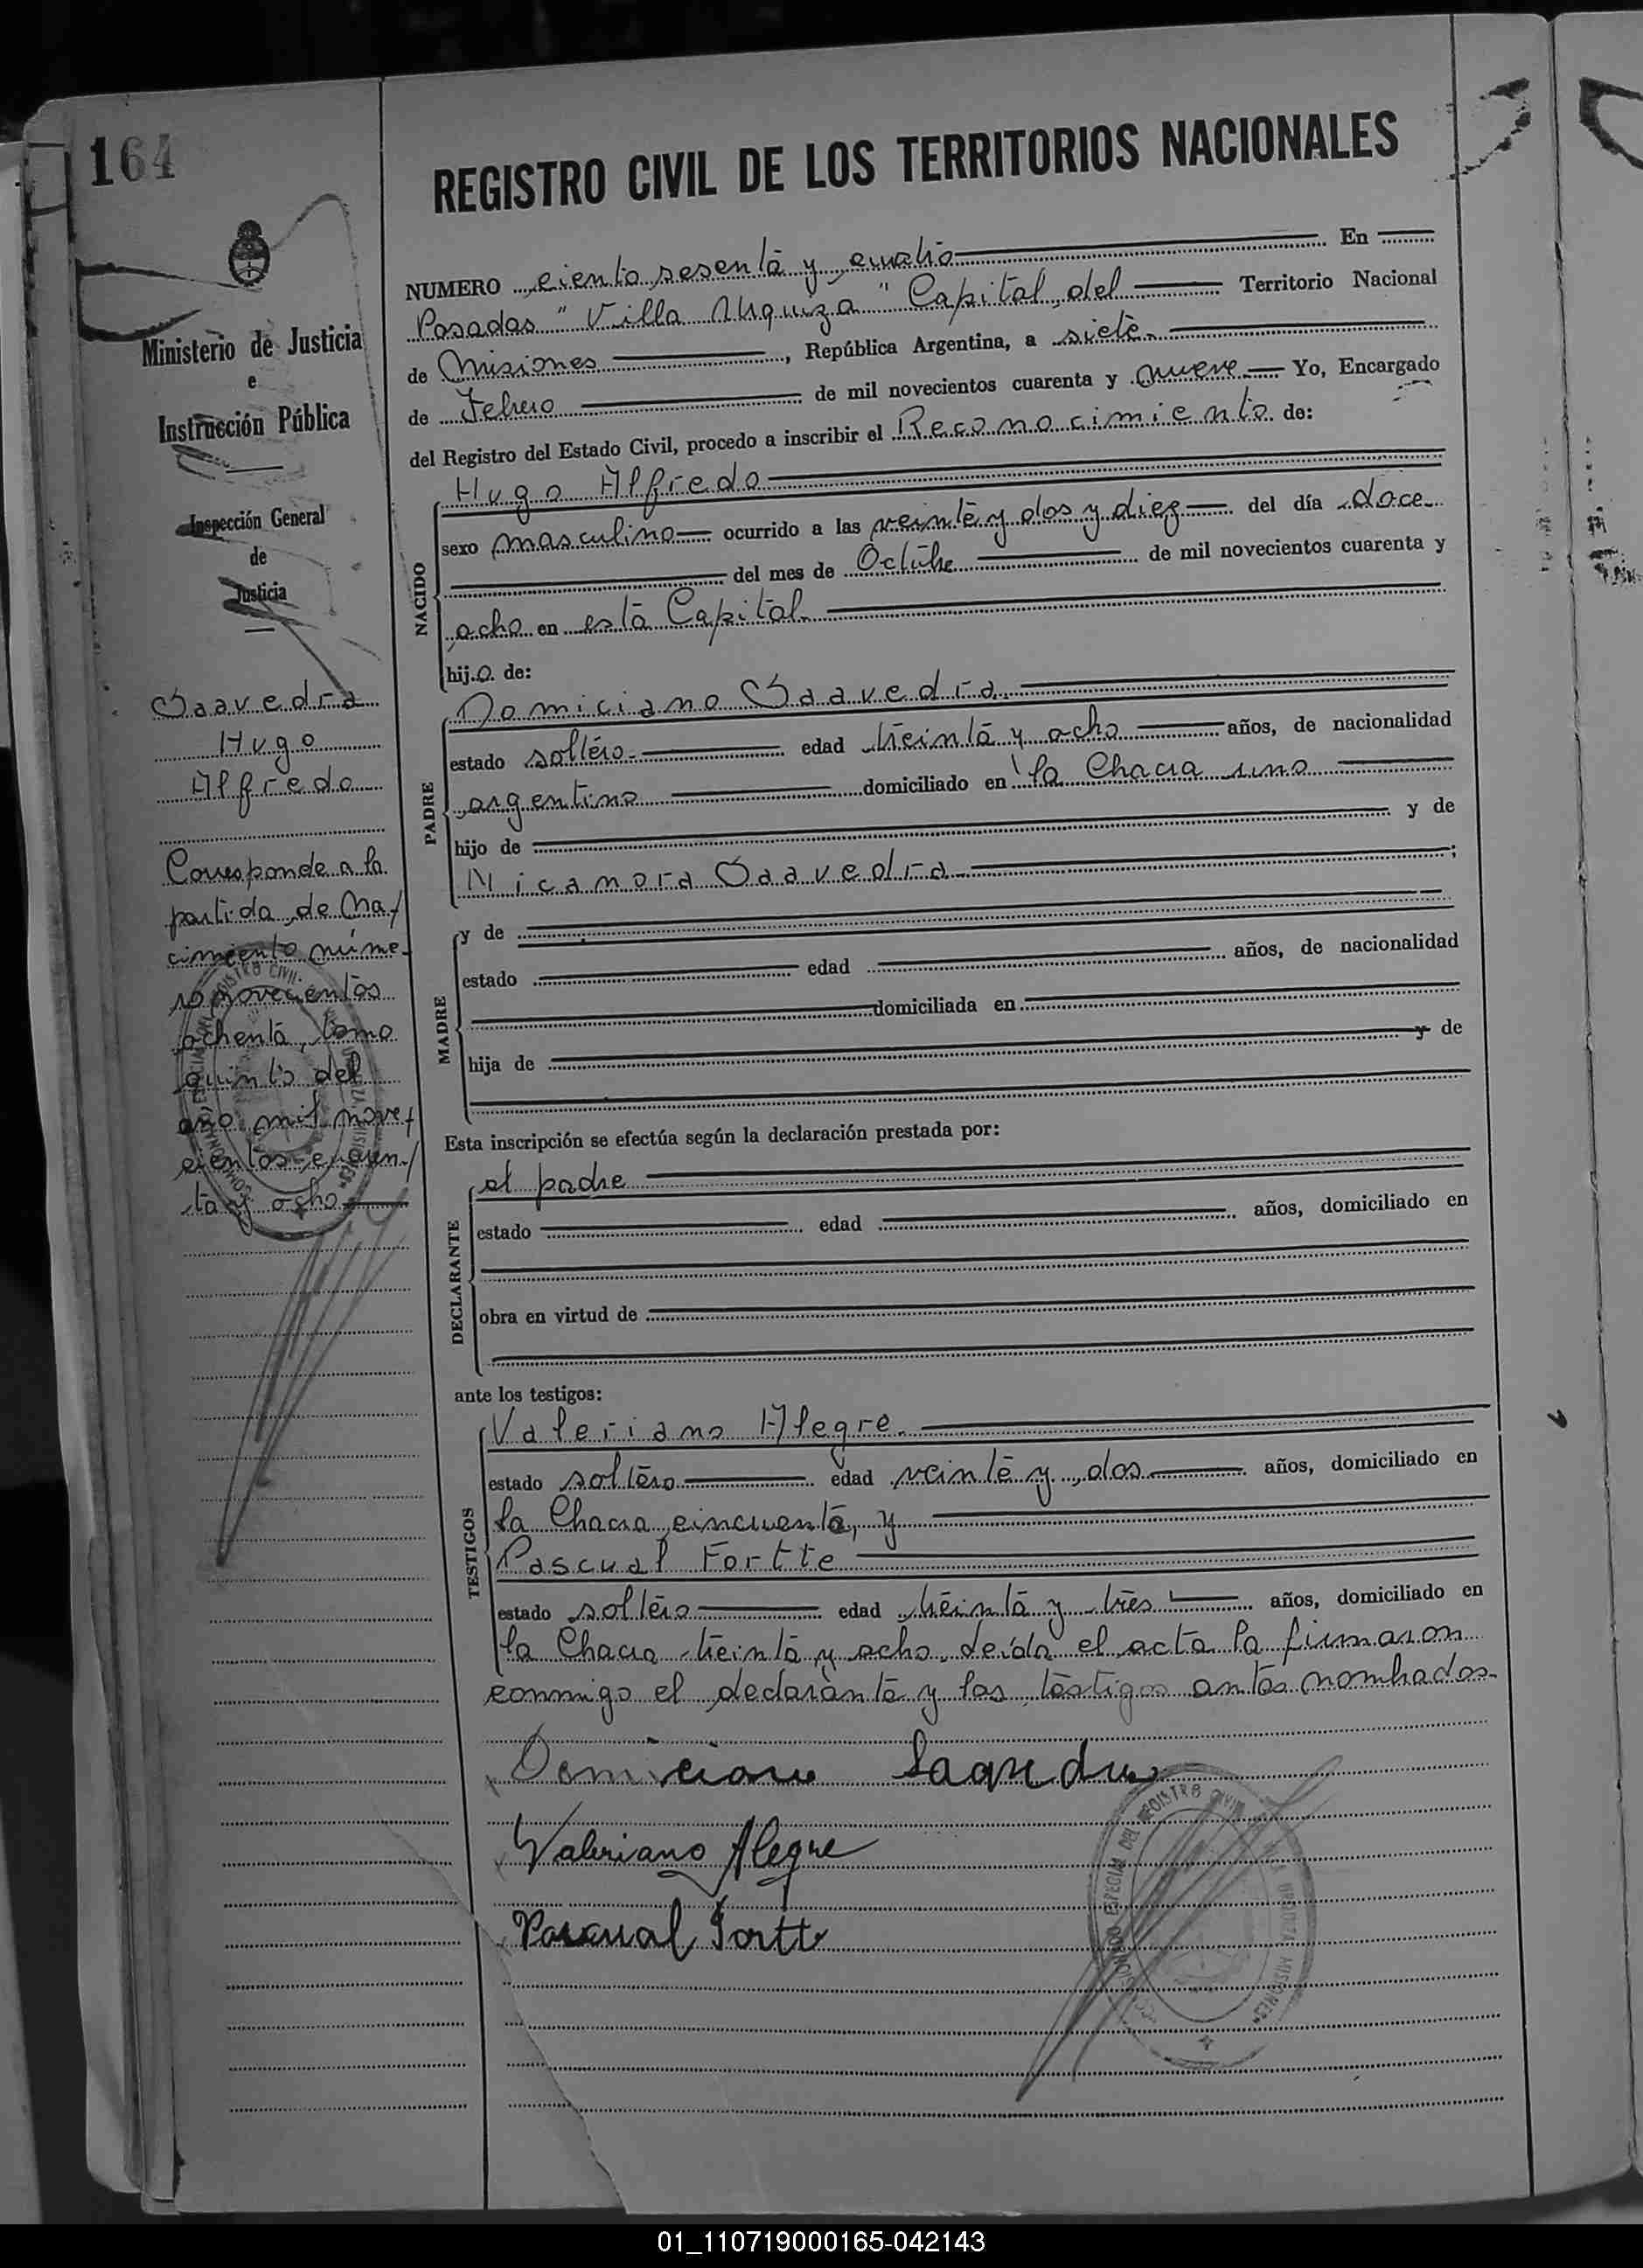 164
REGISTRO CIVIL DE LOS TERRITORIOS NACIONALES
NUMERO ciento sesenta y cuatro En
Posadas "Villa Urquiza" Capital del Territorio Nacional
de Misiones, República Argentina, a siete
de Febrero de mil novecientos cuarenta y nueve Yo, Encargado
del Registro del Estado Civil, procedo a inscribir el Reconocimiento de:
NACIDO
Hugo Alfredo
sexo masculino ocurrido a las veinte y dos y diez del día doce
del mes de Octubre de mil novecientos cuarenta y
ocho en esta Capital.
hijo de:
PADRE
Domiciano Saavedra.
estado soltero. edad treinta y ocho años, de nacionalidad
argentino domiciliado en la Chacra uno
hijo de y de
Nicanora Saavedra ;
MADRE
y de
estado edad años, de nacionalidad
domiciliada en
hija de y de
Esta inscripción se efectúa según la declaración prestada por:
DECLARANTE
el padre
estado edad años, domiciliado en
obra en virtud de
ante los testigos:
TESTIGOS
Valeriano Alegre.
estado soltero edad veinte y dos años, domiciliado en
la Chacra cincuenta, y
Pascual Fortte
estado soltero edad treinta y tres años, domiciliado en
la Chacra treinta y ocho. Leída el acta la firmaron
conmigo el declarante y los testigos antes nombrados.
Domiciano Saavedra
Valeriano Alegre
Pascual Fortte
ESPECIAL DEL REGISTRO CIVIL
MISIONES
Ministerio de Justicia
e
Instrucción Pública
Inspección General
de
Justicia
Saavedra
Hugo
Alfredo
Corresponde a la
partida de Na/
cimiento núme-
ro novecientos
ochenta, tomo
quinto del
año mil nove/
cientos cuaren/
ta y ocho
REGISTRO CIVIL
01_110719000165-042143